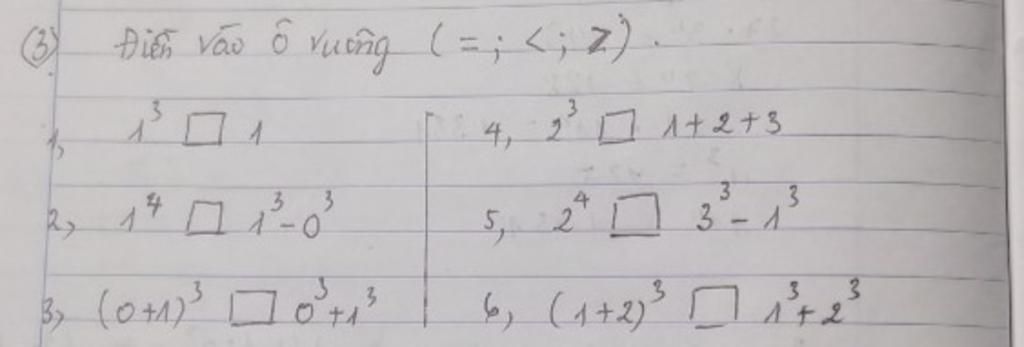 ③ Điền vào ô vuông (=; <; >).
1, 1³ □ 1
2, 1⁴ □ 1³ - 0³
3, (0+1)³ □ 0³+1³
4, 2³ □ 1+2+3
5, 2⁴ □ 3³ - 1³
6, (1+2)³ □ 1³+2³